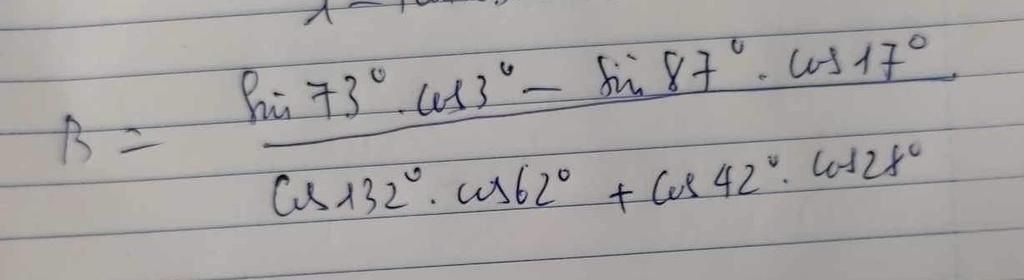 B = (sin 73° . cos 3° - sin 87° . cos 17°) / (cos 132° . cos 62° + cos 42° . cos 28°)